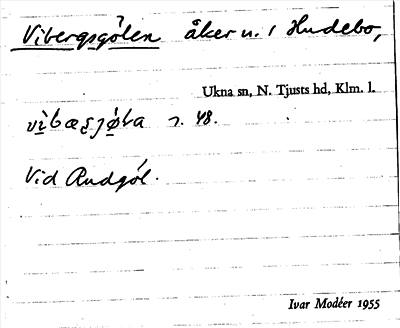 Vibergsgölen åker n. i Hudebo,
Ukna sn, N. Tjusts hd, Klm. l.
48.
Vid Rudgöl.
Ivar Modéer 1955